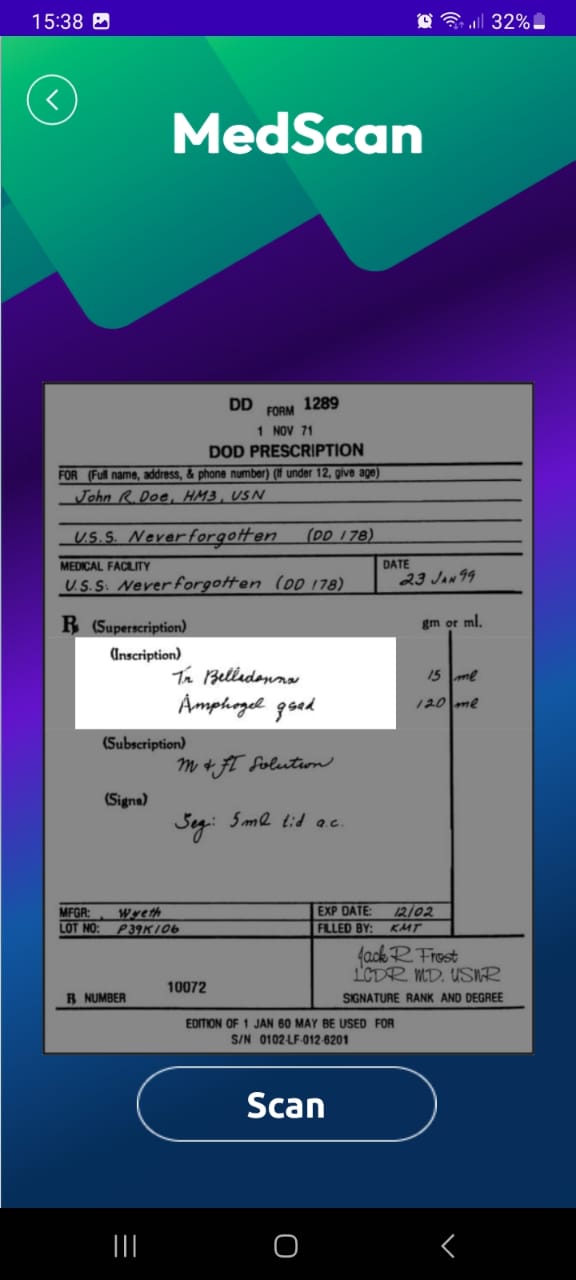 15:38 32%
MedScan
DD FORM 1289
1 NOV 71
DOD PRESCRIPTION
FOR (Full name, address, & phone number) (If under 12, give age)
John R. Doe, HM3, USN
U.S.S. Neverforgotten (DD 178)
MEDICAL FACILITY
U.S.S. Neverforgotten (DD 178)
DATE
23 JAN 99
℞ (Superscription) gm or ml.
(Inscription)
Tr Belladonna 15 ml
Amphogel qsad 120 ml
(Subscription)
M & FT Solution
(Signa)
Sig: 5ml tid a.c.
MFGR: Wyeth EXP DATE: 12/02
LOT NO: P39K106 FILLED BY: KMT
Jack R Frost
LCDR MD. USNR
℞ NUMBER 10072 SIGNATURE RANK AND DEGREE
EDITION OF 1 JAN 60 MAY BE USED FOR
S/N 0102-LF-012-6201
Scan